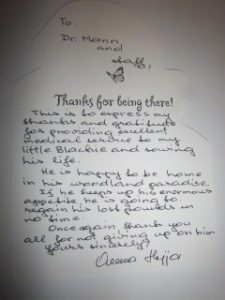 To:
Dr. Mann
and
staff,
Thanks for being there!
This is to express my
thanks and gratitude
for providing excellent
medical service to my
little Blackie and saving
his life.
He is happy to be home
in his woodland paradise.
If he keeps up his enormous
appetite, he is going to
regain his lost pounds in
no time.
Once again thank you
all for not giving up on him
Yours sincerely,